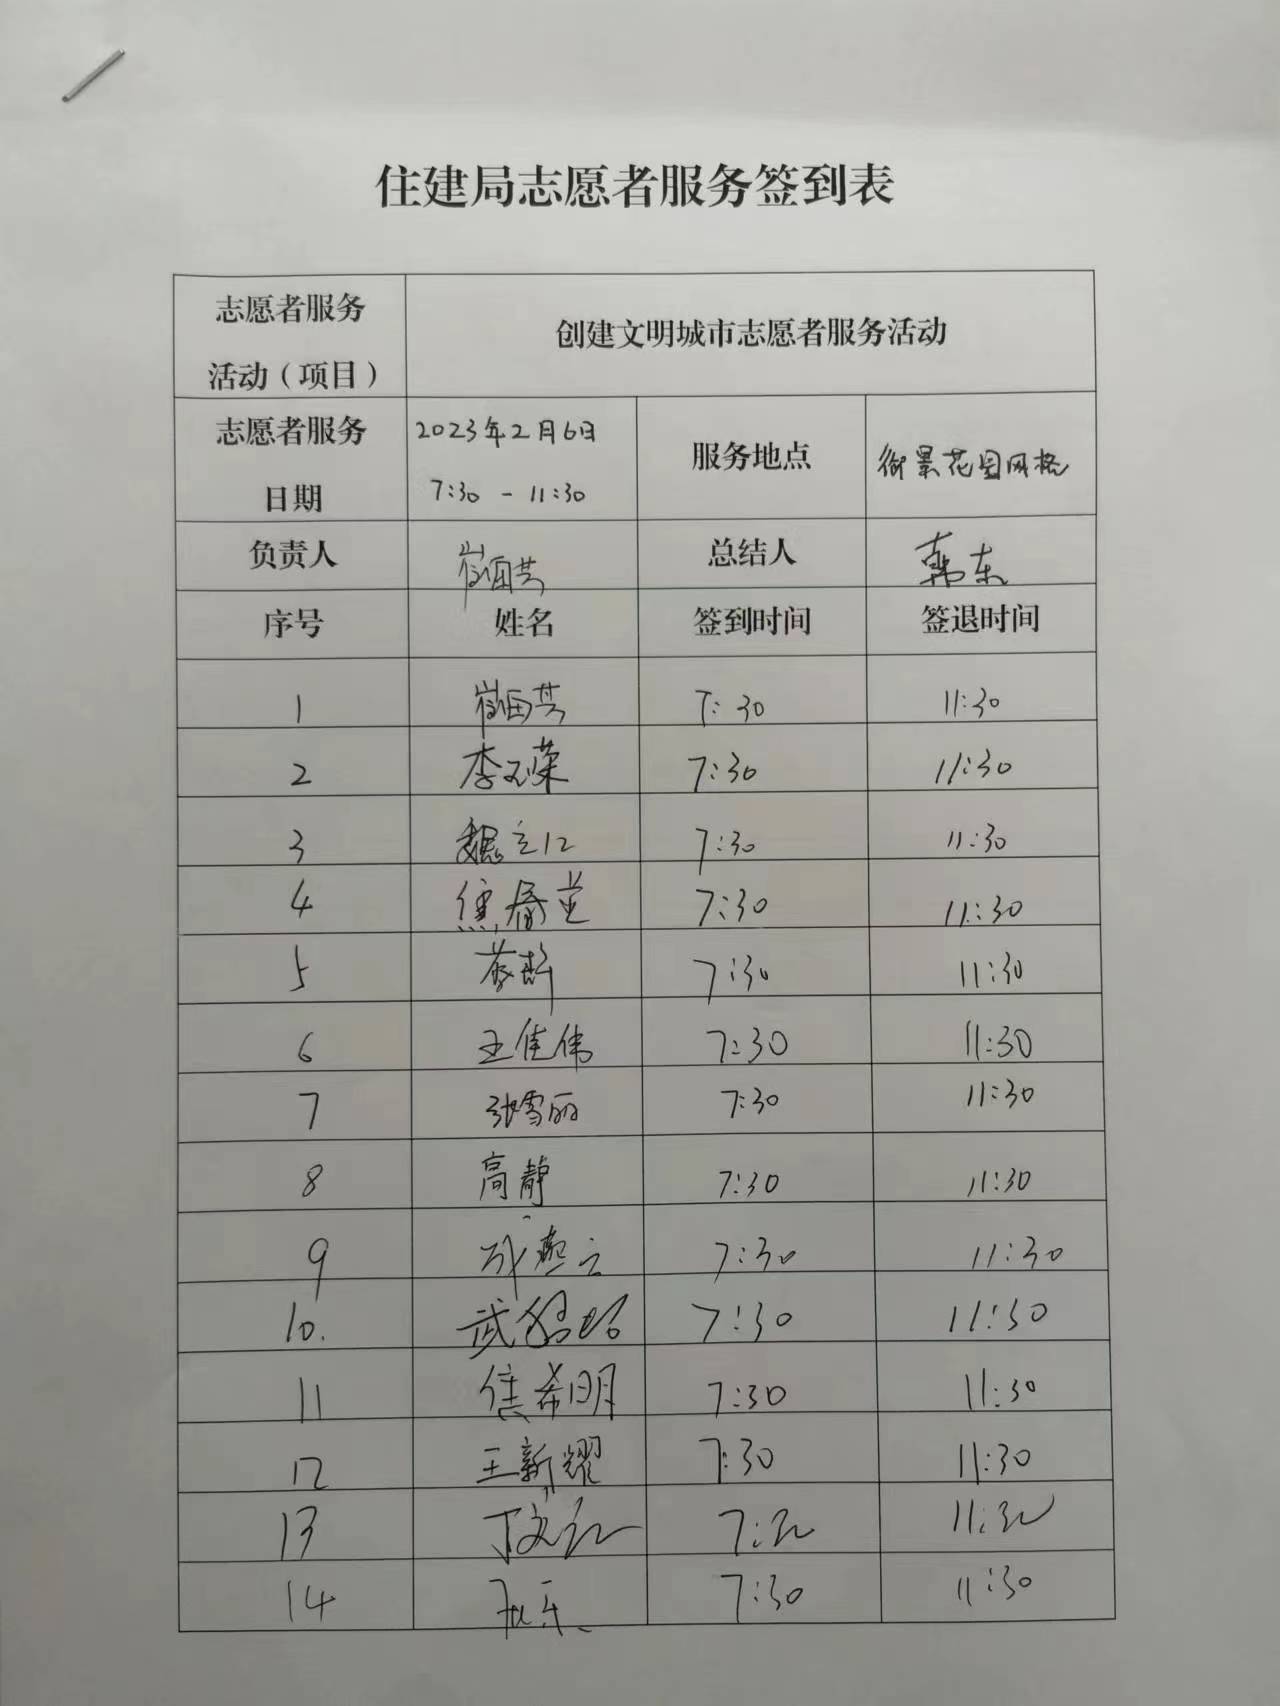 住建局志愿者服务签到表
志愿者服务
活动（项目）
创建文明城市志愿者服务活动
志愿者服务
日期
2023年2月6日
7:30 - 11:30
服务地点
御景花园网格
负责人
总结人
韩东
序号 姓名 签到时间 签退时间
1 7:30 11:30
2 李玉荣 7:30 11:30
3 魏立江 7:30 11:30
4 焦春芝 7:30 11:30
5 7:30 11:30
6 王佳伟 7:30 11:30
7 张雪丽 7:30 11:30
8 高静 7:30 11:30
9 成燕云 7:30 11:30
10. 武 7:30 11:30
11 焦希明 7:30 11:30
12 王新耀 7:30 11:30
13 丁 7:30 11:30
14 7:30 11:30